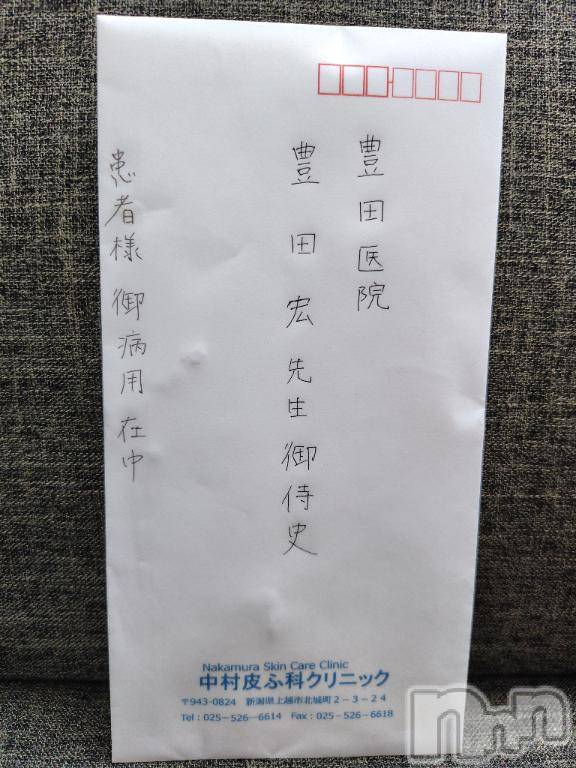 豊田医院
豊田宏先生御侍史
患者様御病用在中
Nakamura Skin Care Clinic
中村皮ふ科クリニック
〒943-0824 新潟県上越市北城町2-3-24
Tel:025-526-6614 Fax:025-526-6618